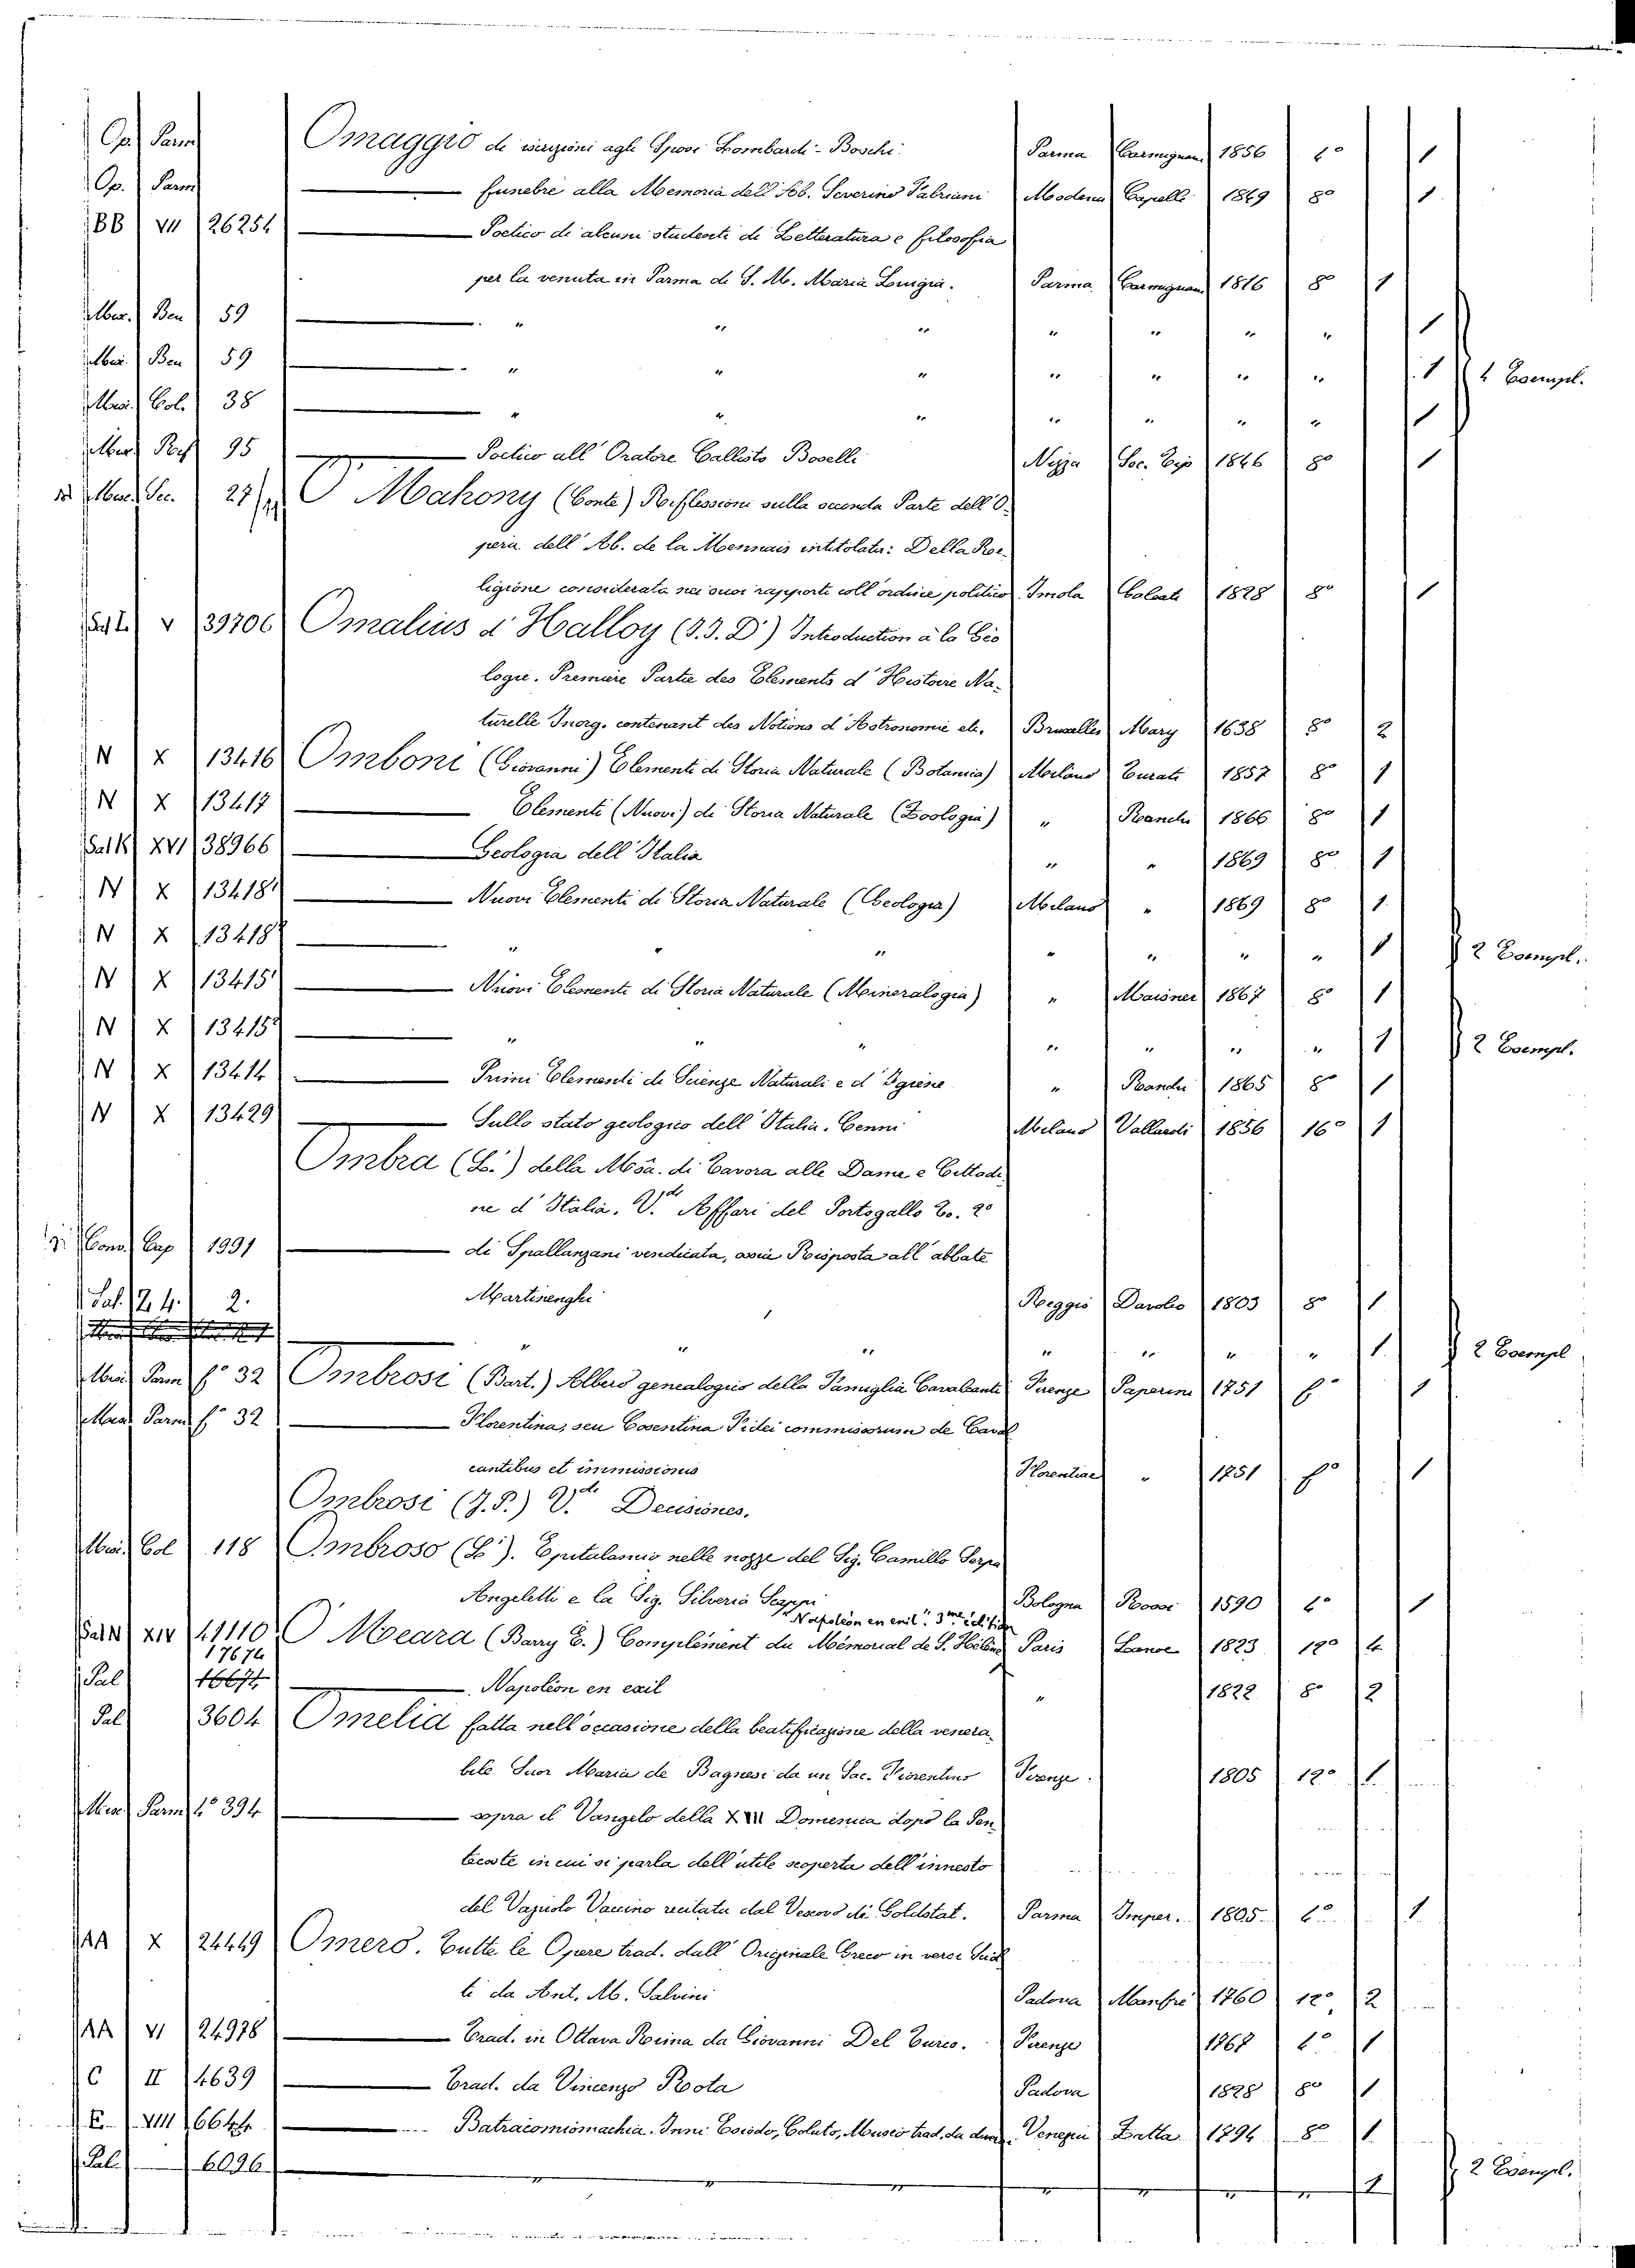 Op. Parm Omaggio di iscrizioni agli Sposi Lombardi-Boschi. Parma Carmignani 1856 4° 1
Op. Parm — funebre alla Memoria dell' Ab. Severino Fabriani Modena Capelli 1849 8° 1
BB VII 26254 — Poetico di alcuni studenti di Letteratura e filosofia
per la venuta in Parma di S. M. Maria Luigia. Parma Carmignani 1816 8° 1
Misc. Ben 59 — " " " " " " " 1
Misc. Ben 59 — " " " " " " " 1 4 Esempl.
Misc. Col. 38 — " " " " " " " 1
Misc. 95 — Poetico all' Oratore Callisto Boselli Nizza Soc. Tip 1846 8° 1
Misc. Sec. 27 O Mahony (Conte) Riflessioni sulla seconda Parte dell' O-
pera dell' Ab. de la Mennais intitolata: Della Re-
ligione considerata nei suoi rapporti coll' ordine politico. Imola Galeati 1828 8° 1
Sal. L. V 39706 Omalius d' Halloy (J. J. D') Introduction à la Géo
logie. Première Partie des Elements d' Histoire Na-
turelle Inorg. contenant des Notions d' Astronomie etc. Bruxelles Mary 1638 8° 2
N X 13416 Omboni (Giovanni) Elementi di Storia Naturale (Botanica) Milano Turati 1857 8° 1
N X 13417 — Elementi (Nuovi) di Storia Naturale (Zoologia) " Ranchi 1866 8° 1
Sal. K XVI 38966 — Geologia dell' Italia " " 1869 8° 1
N X 13418¹ — Nuovi Elementi di Storia Naturale (Geologia) Milano " 1869 8° 1
N X 13418² — " " " " " " " 1 2 Esempl.
N X 13415¹ — Nuovi Elementi di Storia Naturale (Mineralogia) " Maisner 1867 8° 1
N X 13415² — " " " " " " " 1 2 Esempl.
N X 13414 — Primi Elementi di Scienze Naturali e d' Igiene " Ranchi 1865 8° 1
N X 13429 — Sullo stato geologico dell' Italia. Cenni Milano Vallardi 1856 16° 1
Ombra (L') della Msa. di Tavora alle Dame e Cittadi
ne d' Italia. V.de Affari del Portogallo To. 2°
Conv. Cap 1991 — di Spallanzani vendicata, ossia Risposta all' abbate
Martinenghi Reggio Davolio 1803 8° 1
Sal. Z. 4. 2. — " " " " " " " 1 2 Esempl
Misc. Parm f° 32 Ombrosi (Bart.) Albero genealogico della Famiglia Cavalcanti Firenze Paperini 1751 f° 1
Misc. Parm f° 32 — Florentina, seu Cosentina Fidei commissorum de Caval
cantibus et immissionis Florentiae " 1751 f° 1
Ombrosi (J. P.) V.de Decisiones.
Misc. Col 118 Ombroso (L'). Epitalamio nelle nozze del Sig. Camillo
Angeletti e la Sig. Silveria Seappi Bologna Rossi 1590 4° 1
"Napoléon en exil" 3me édition
Sal. N XIV 41110 O Meara (Barry E.) Complément du Mémorial de S. Hélène Paris 1823 12° 4
17674
Pal 16674 — Napoléon en exil " 1822 8° 2
Pal 3604 Omelia fatta nell' occasione della beatificazione della venera-
bile Suor Maria de Bagnesi da un Sac. Fiorentino Firenze. 1805 12° 1
Misc. Parm 4° 394 — sopra il Vangelo della XIII Domenica dopo la Pen-
tecoste in cui si parla dell' utile scoperta dell' innesto
del Vajuolo Vaccino recitata dal Vescovo di Goldstat. Parma Imper. 1805 4° 1
AA X 24449 Omero. Tutte le Opere trad. dall' Originale Greco in versi Sciol
ti da Ant. M. Salvini Padova Manfrè 1760 12° 2
AA VI 24978 — Trad. in Ottava Rima da Giovanni Del Turco. Firenze 1767 4° 1
C II 4639 — Trad. da Vincenzo Rota Padova 1828 8° 1
E VIII 6644 — Batracomiomachia. Inni Coluto, Museo trad. da Venezia Zatta 1794 8° 1
Pal. 6096 — " " " " " " " 1 2 Esempl.